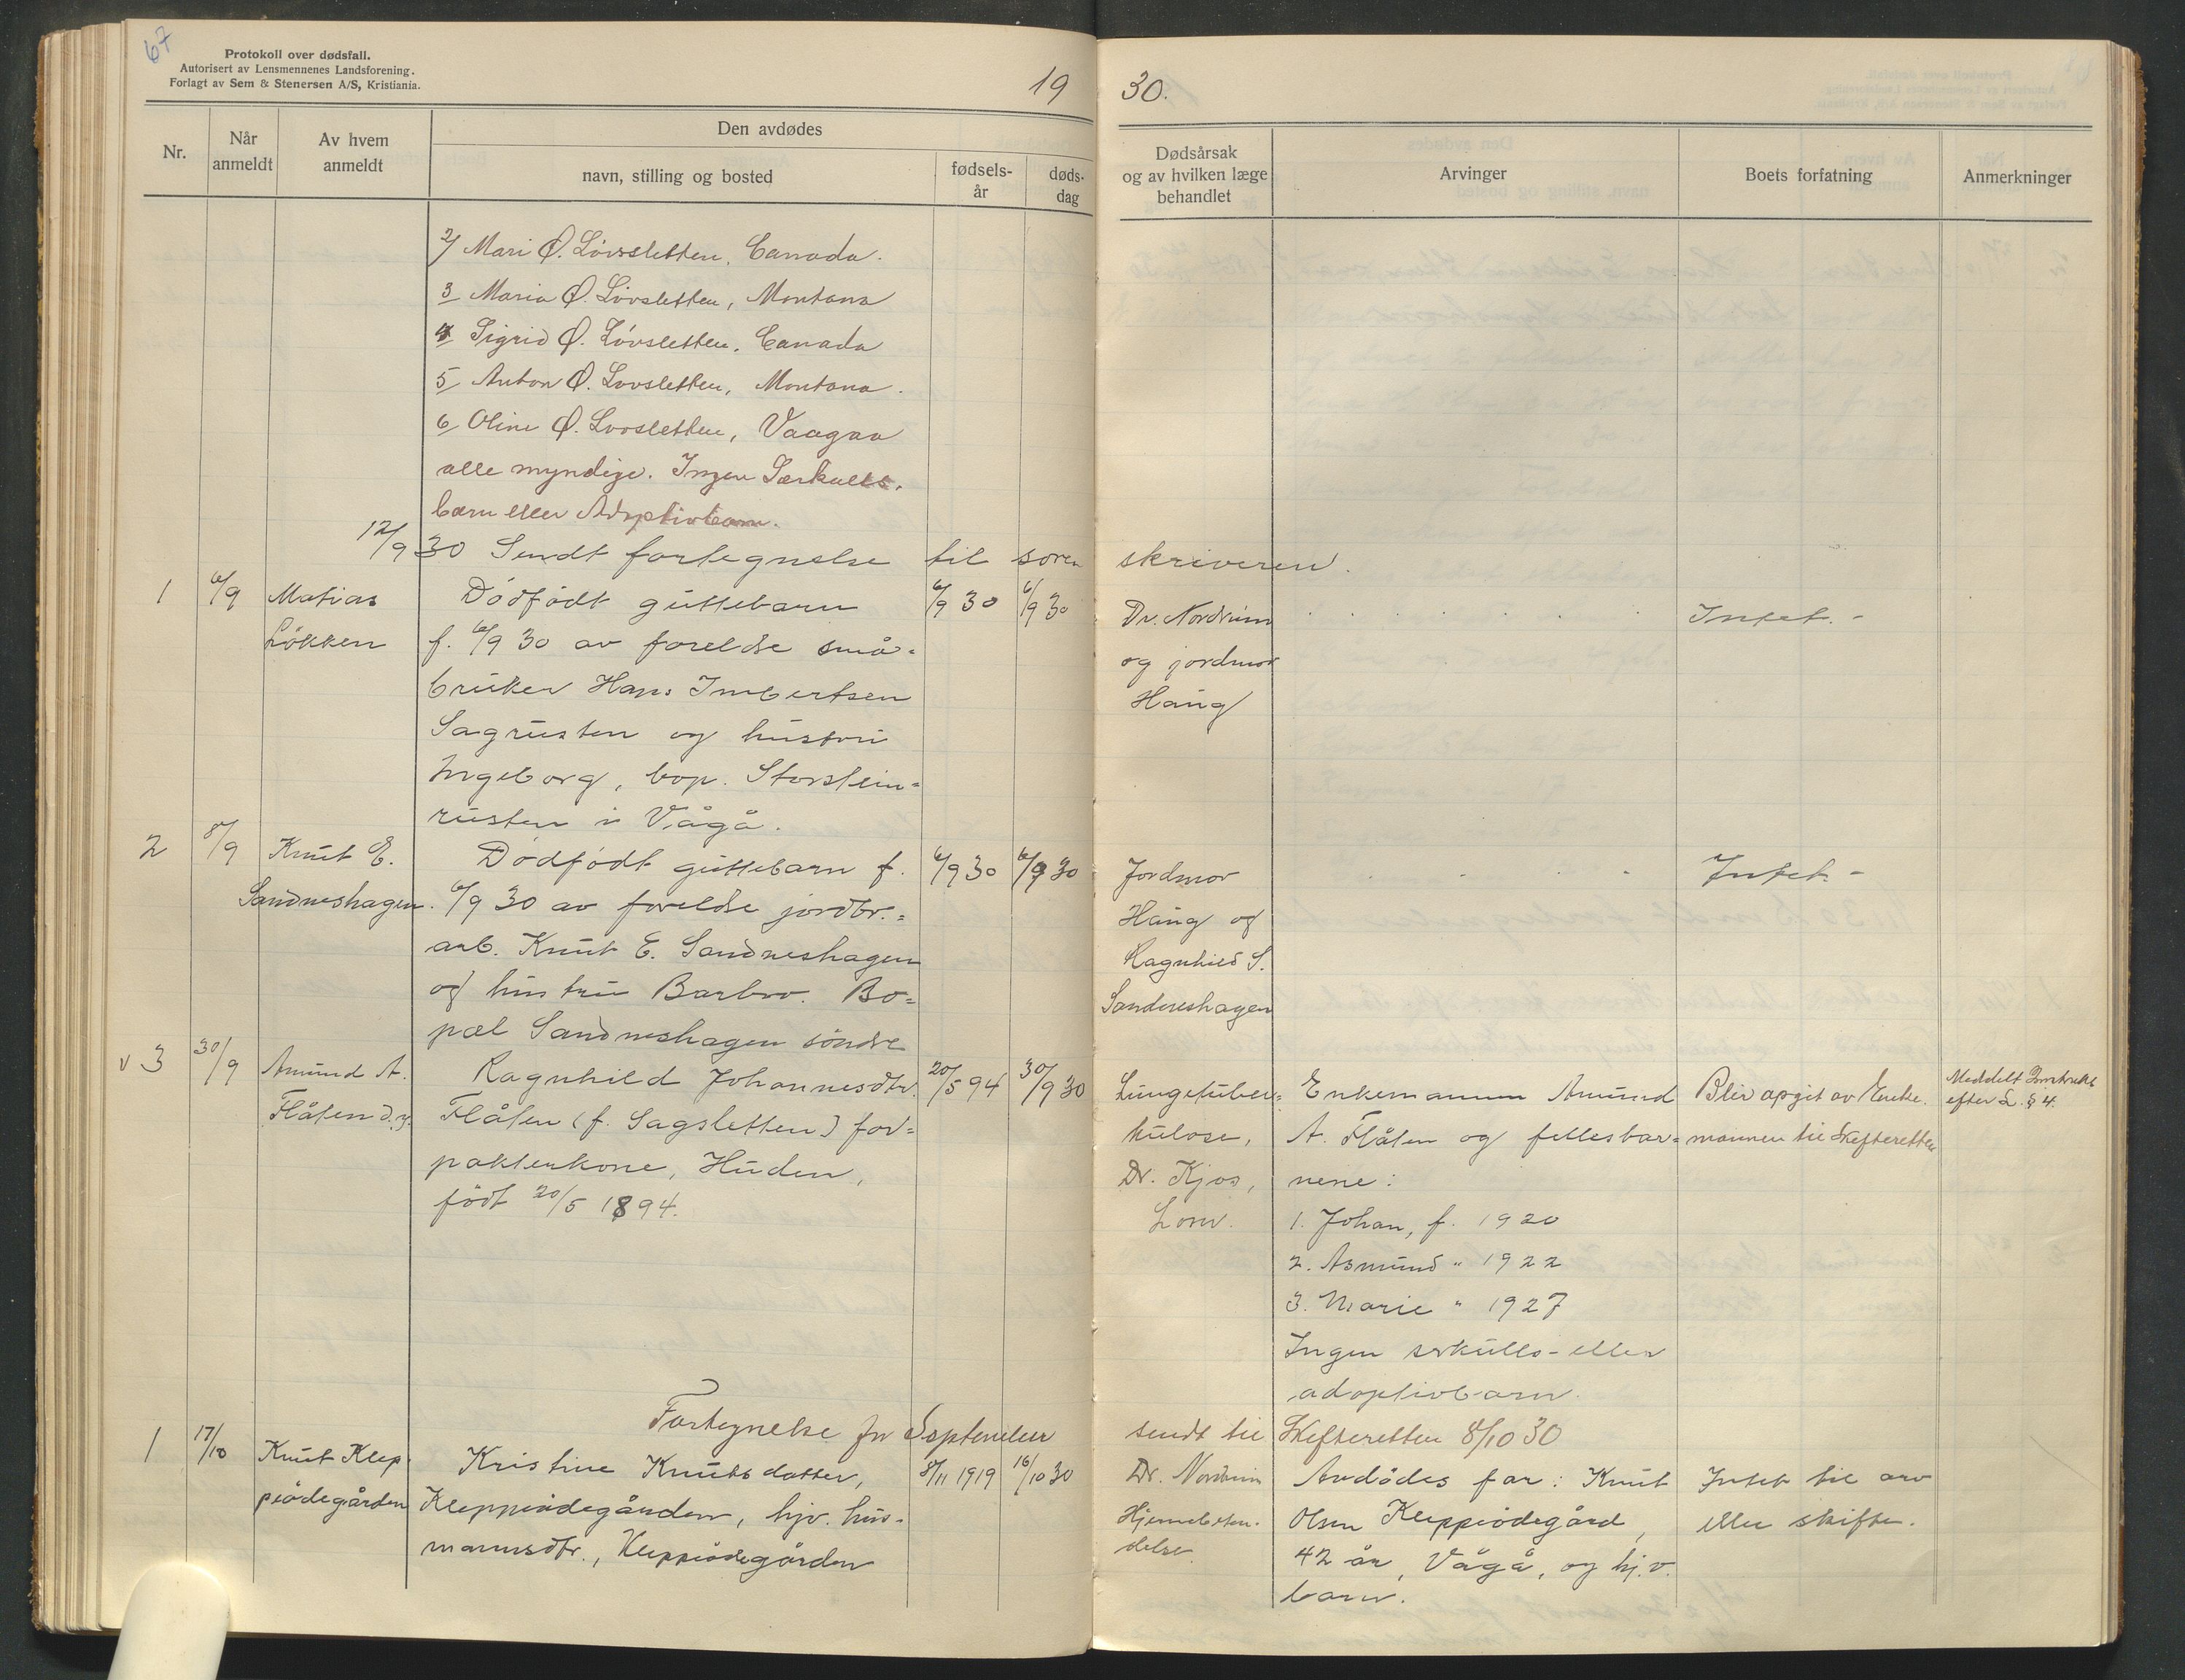 67
Protokoll over dødsfall.
Autorisert av Lensmennenes Landsforening.
Forlagt av Sem & Stenersen A/S, Kristiania.
19 30.
Nr.
Når anmeldt
Av hvem anmeldt
Den avdødes
navn, stilling og bosted
fødsels-
år
døds-
dag
Dødsårsak
og av hvilken læge
behandlet
Arvinger
Boets forfatning
Anmerkninger
2/ Mari Ø. Lövsletten, Canada.
3 Maria Ø. Lövsletten, Montana
4 Sigrid Ø. Lövsletten, Canada
5 Anton Ø. Lovsletten, Montana.
6 Oline Ø. Lovsletten, Vaagaa
alle myndige. Ingen Særkulls-
barn eller Adoptivbarn.
12/9 30 Sendt fortegnelse til soren skriveren.
1
6/9
Matias
Løkken
Dödfödt guttebarn
f. 6/9 30 av foreldre små-
bruker Hans Imbertsen
Sagrusten og hustru
Ingeborg, bop. Storstein-
rusten i Vågå.
6/9 30
6/9 30
Dr. Nordrum
og jordmor
Haug
Intet. -
2
8/9
Knut E.
Sandneshagen.
Dödfödt guttebarn f.
6/9 30 av foreldre jordbr.=
arb. Knut E. Sandneshagen
og hustru Barbro. Bo=
pæl Sandneshagen söndre
6/9 30
6/9 30
Jordmor
Haug og
Ragnhild S.
Sandneshagen
Intet. -
v 3
30/9
Amund A.
Flåten d.y.
Ragnhild Johannesdtr.
Flåten (f. Sagsletten) for=
pakterkone, Huden,
födt 20/5 1894.
20/5 94
30/9 30
Lungetuber=
kulose,
Dr. Kjos,
Lom.
Enkemannen Amund
A. Flåten og fellesbar=
nene:
1. Johan, f. 1920
2. Asmund " 1922
3. Marie " 1927
Ingen serkulls- eller
adoptivbarn.
Blir opgit av Enke-
mannen til Skifteretten
Meddelt
efter L. § 4.
Fortegnelse for September sendt til Skifteretten 8/10 30
1
17/10
Knut Klep-
peödegården
Kristine Knutsdatter,
Kleppeödegården, hjv. hus-
mannsdtr., Kleppeödegården
8/11 1919
16/10 30
Dr. Nordrum
Hjernebeten-
delse.
Avdödes far: Knut
Olsen Kleppeödegård,
42 år, Vågå, og hj.v.
barn.
Intet til arv
eller skifte.